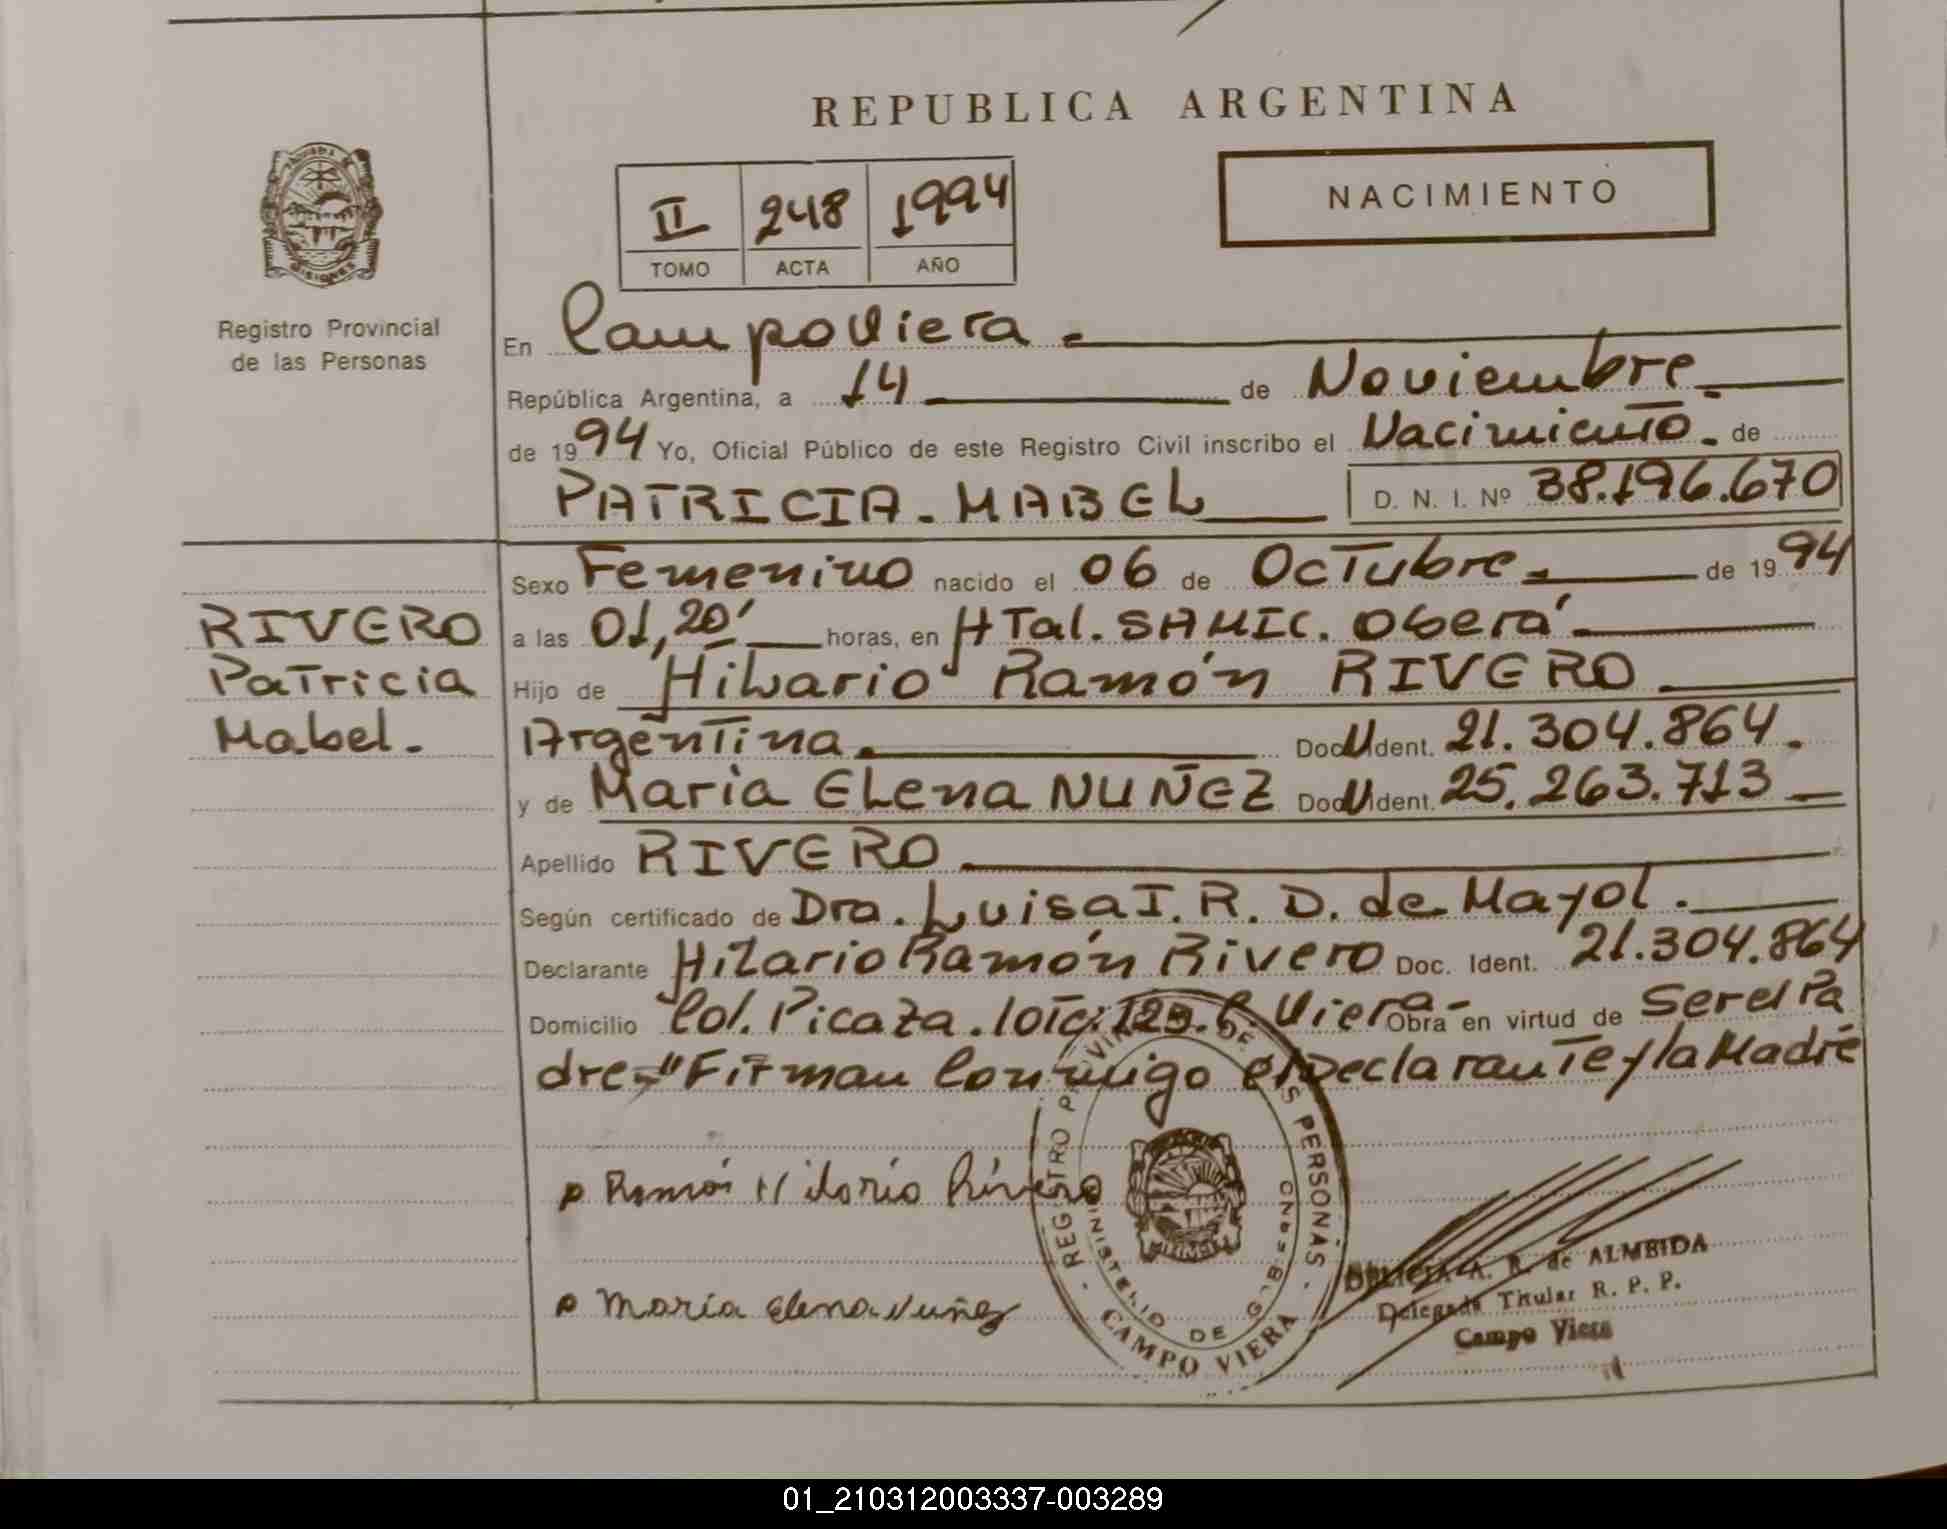 REPUBLICA ARGENTINA
NACIMIENTO
II 248 1994
TOMO ACTA AÑO
Registro Provincial
de las Personas
En Campo Viera.
República Argentina, a 14 de Noviembre.
de 1994 Yo, Oficial Público de este Registro Civil inscribo el Nacimiento. de
PATRICIA. MABEL D. N. I. Nº 38.196.670
Sexo Femenino nacido el 06 de Octubre. de 1994
RIVERO
Patricia
Mabel.
a las 01,20' horas, en HTal. SAMIC. Oberá.
Hijo de Hilario Ramón RIVERO
Argentina. Doc U Ident. 21.304.864.
y de Maria Elena NUÑEZ Doc U Ident. 25.263.713
Apellido RIVERO
Según certificado de Dra. Luisa I. R. D. de Mayol.
Declarante Hilario Ramón Rivero Doc. Ident. 21.304.864
Domicilio Col. Picaza. lote: 125. C. Viera- Obra en virtud de Ser el Pa
dre. "Firman Conmigo el Declarante y la Madre
Ramón Hilario Rivero
María Elena Nuñez
REGISTRO PROVINCIAL DE LAS PERSONAS
MINISTERIO DE GOBIERNO
CAMPO VIERA
A. R. de ALMEIDA
Delegada Titular R. P. P.
Campo Viera
01_210312003337-003289